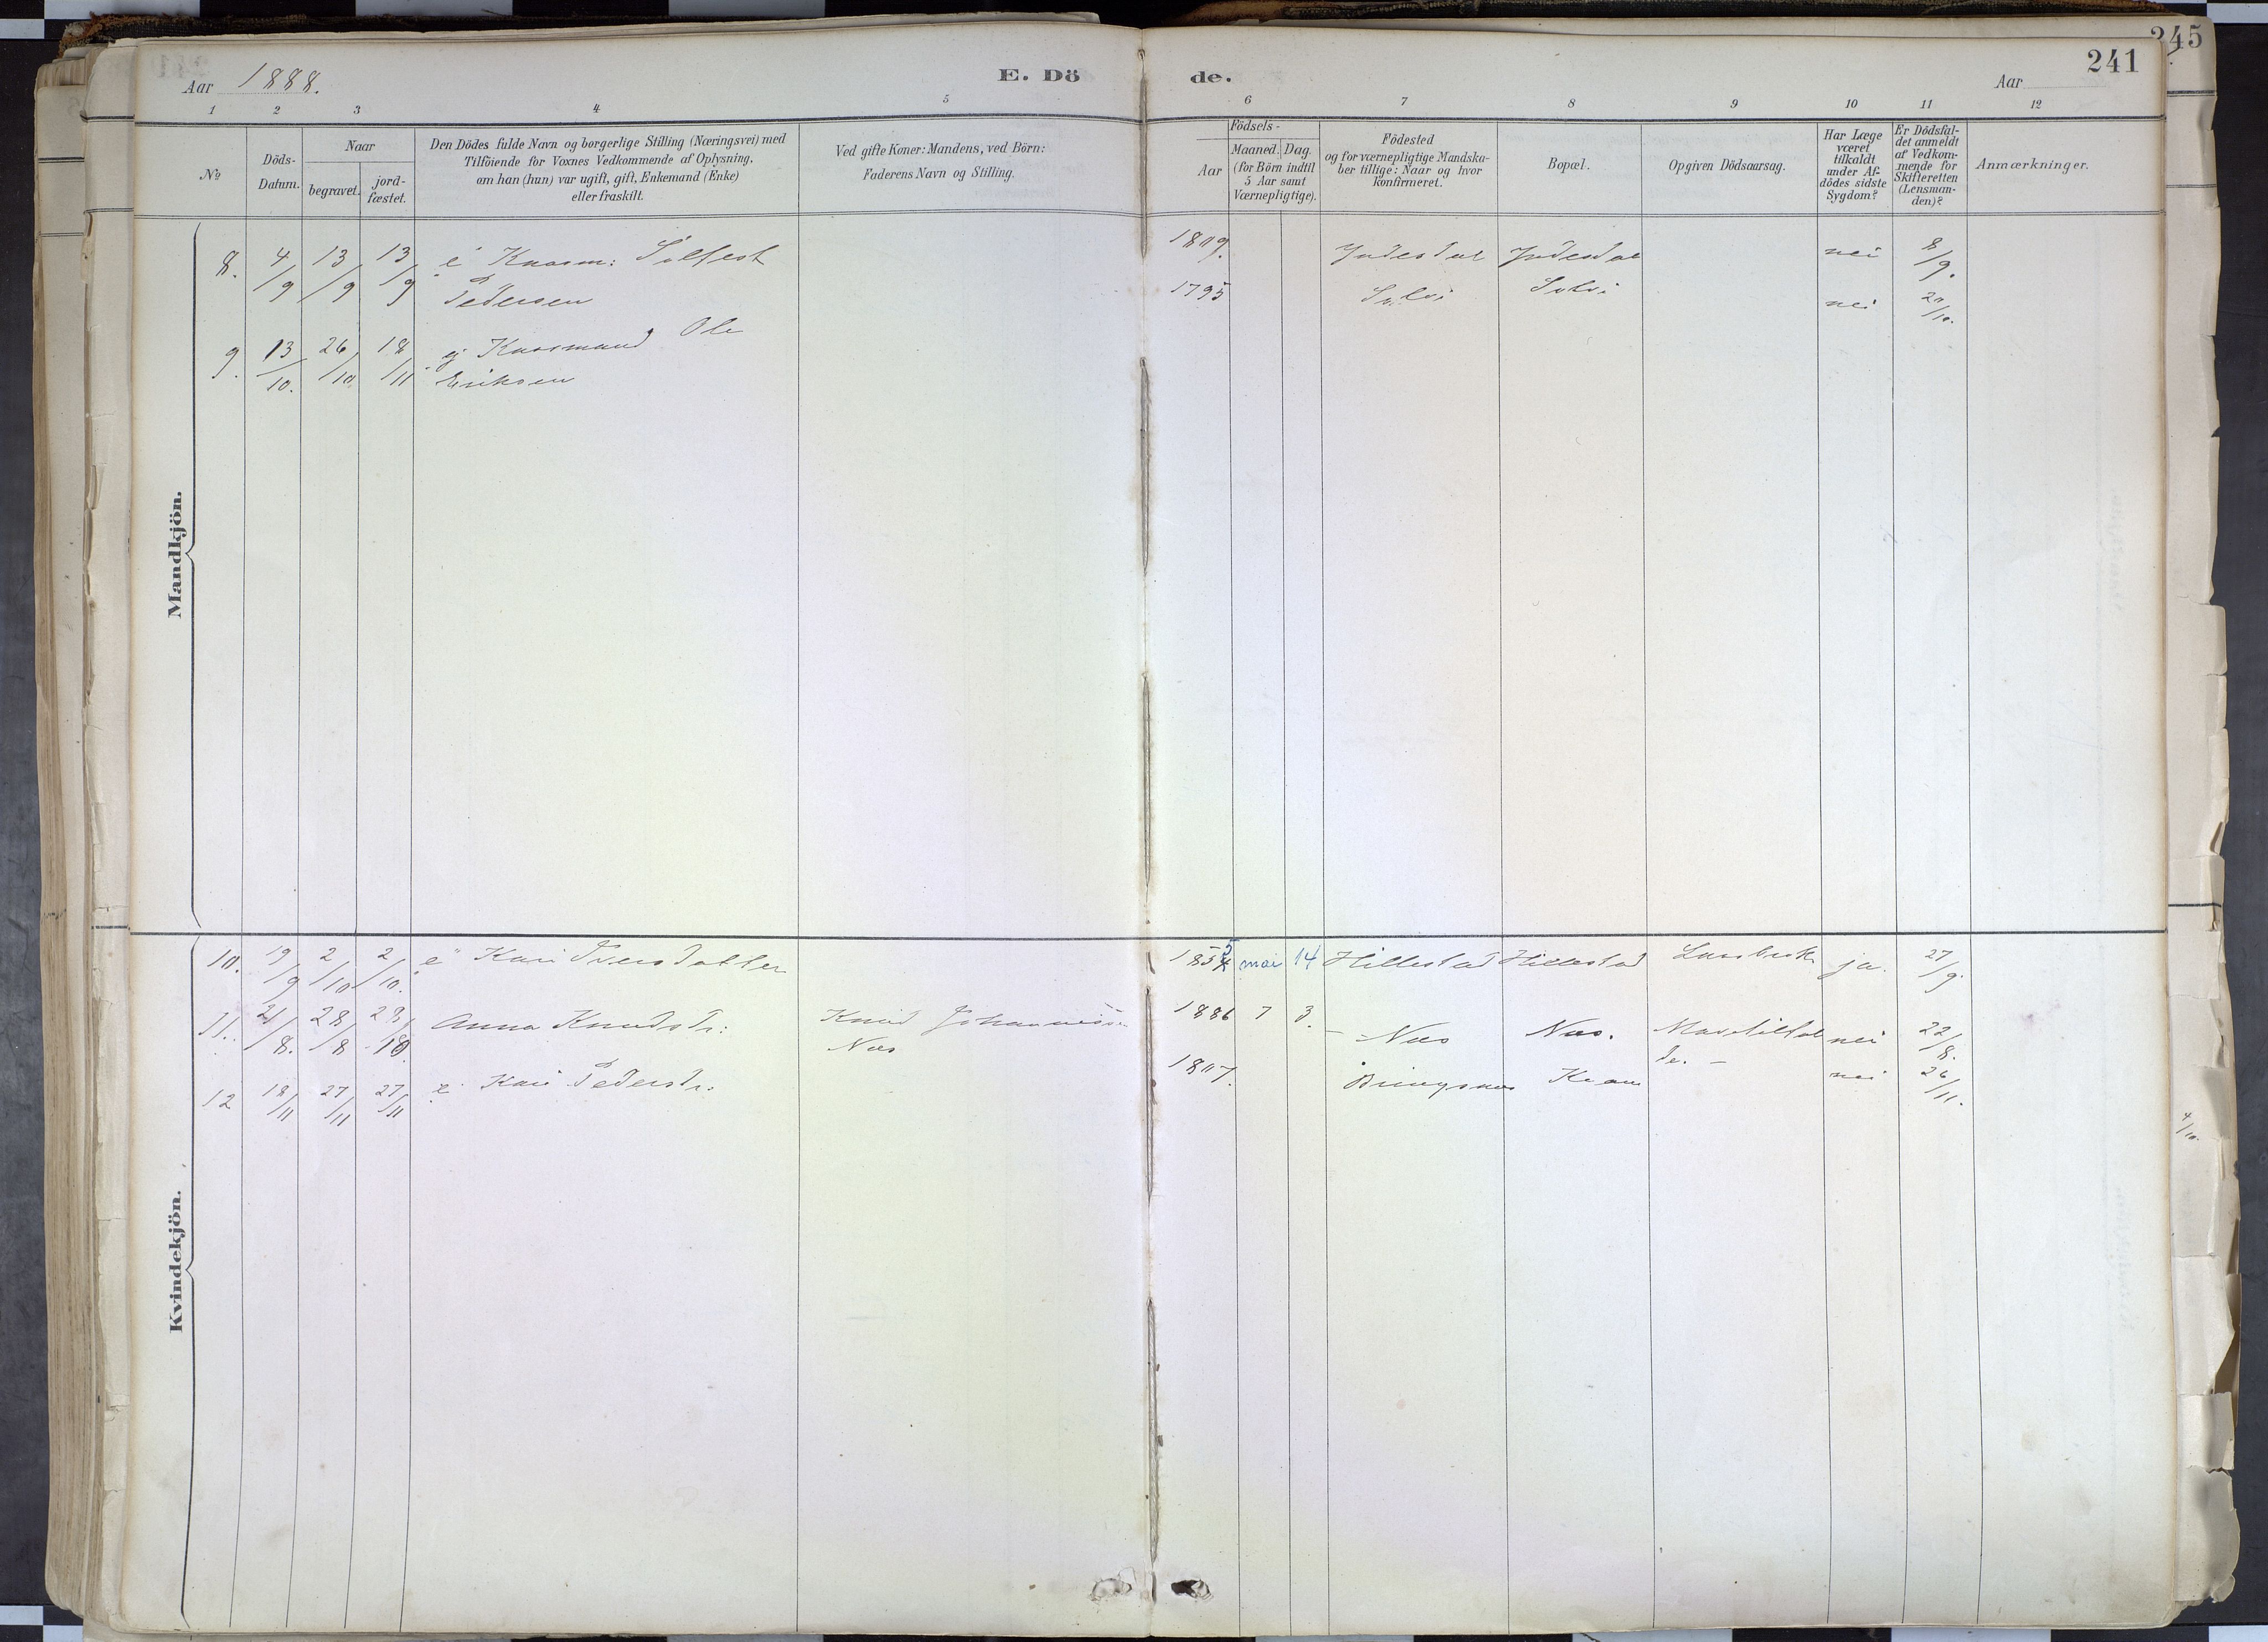 245
241
Aar 1888.
E. Dö
de.
Aar
1 2 3 4 5 6 7 8 9 10 11 12
No
Döds-
Datum.
Naar
begravet.
jord-
fæstet.
Den Dödes fulde Navn og borgerlige Stilling (Næringsvei) med
Tilföiende for Voxnes Vedkommende af Oplysning,
om han (hun) var ugift, gift, Enkemand (Enke)
eller fraskilt.
Ved gifte Koner: Mandens, ved Börn:
Faderens Navn og Stilling.
Födsels-
Aar
Maaned. Dag.
(for Börn indtil
5 Aar samt
Værnepligtige).
Födested
og for værnepligtige Mandska-
ber tillige: Naar og hvor
konfirmeret.
Bopæl.
Opgiven Dödsaarsag.
Har Læge
været
tilkaldt
under Af-
dödes sidste
Sygdom?
Er Dödsfal-
det anmeldt
af Vedkom-
mende for
Skifteretten
(Lensman-
den)?
Anmærkninger.
Mandkjön.
8. 4/9 13/9 13/9 e Kaarm: Sølfest 1809. Indesdal Indesdal nei 8/9.
Pedersen
9. 13/10. 26/10 18/11 g Kaarmand Ole 1795 nei 20/10.
Eriksen
Kvindekjön.
10. 19/9 2/10 2/10. e Kari Iversdatter 1855 mai 14 Hillestad Hillestad ja. 27/9
11. 21/8. 28/8 28/10. Anna Knudsdr: Knud Johannessen 1886 7 3. Næs Næs. nei 22/8.
Næs
12 18/11 27/11 27/11 e Kari Pedersdr: 1807. nei 26/11.
4/10.